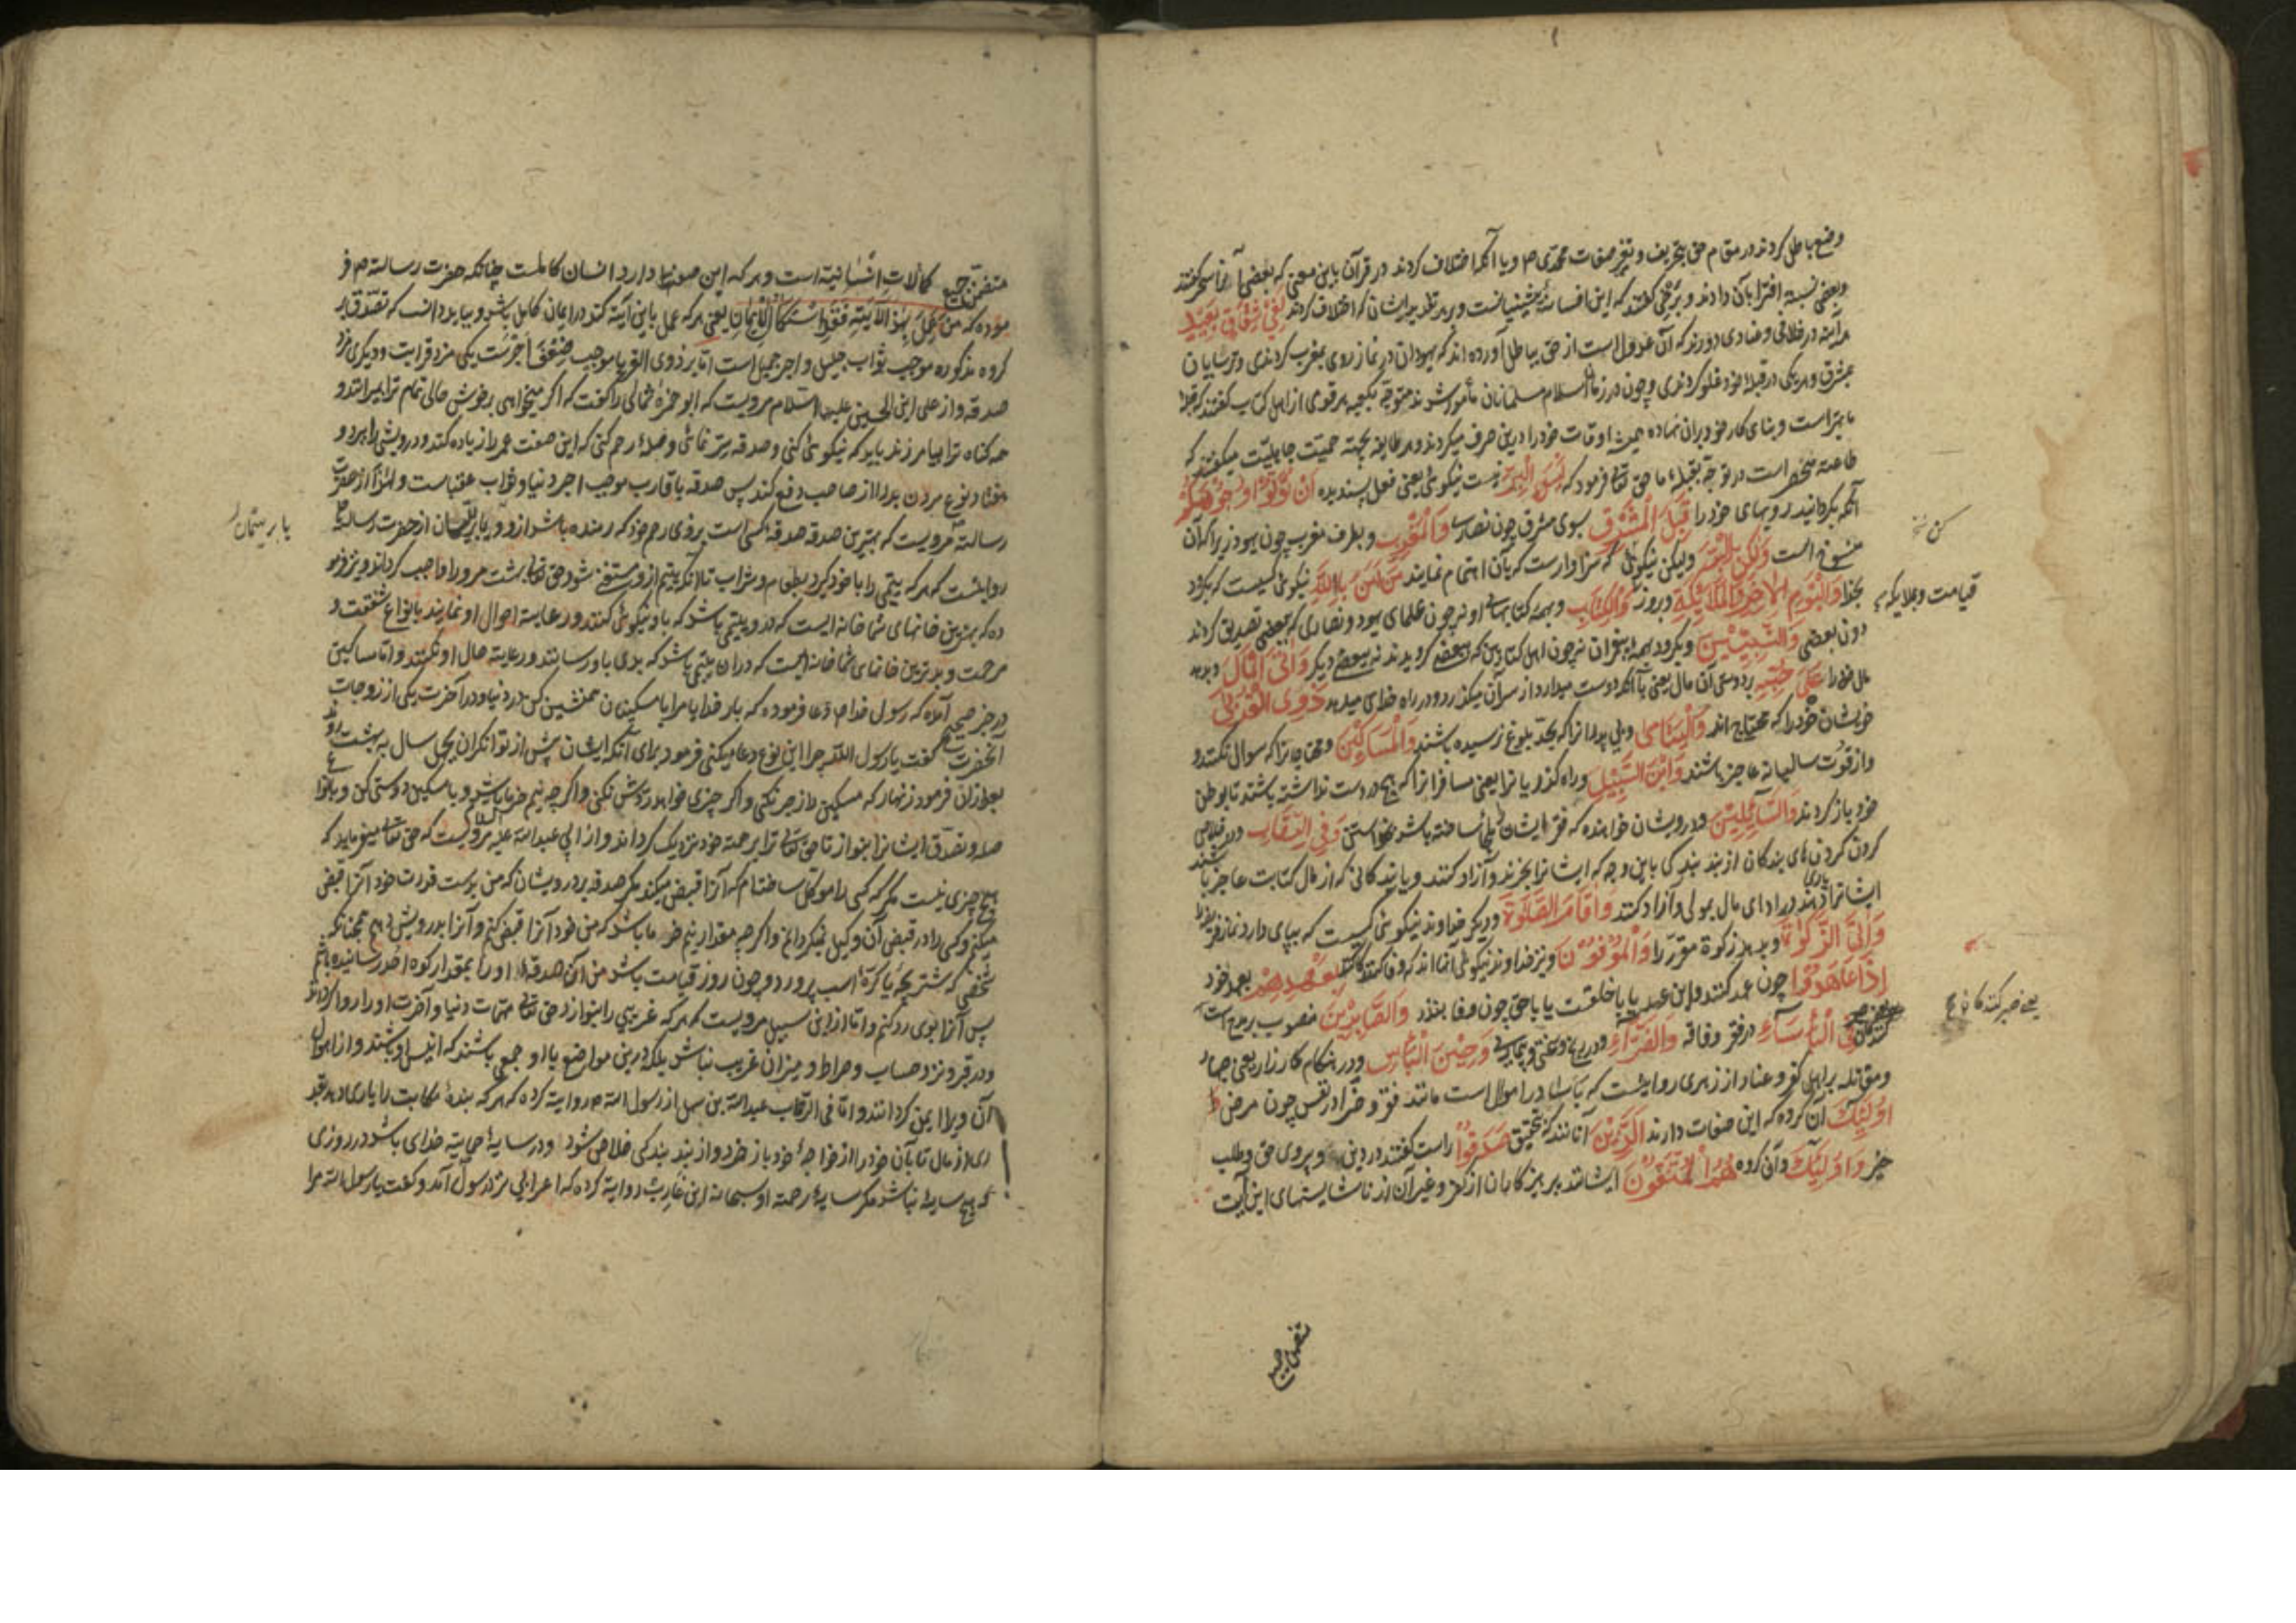 وضع باطل کردند در مقام حق بتحریف و تغیر صفات محمدی ص و یا آنکه اختلاف کردند در قرآن باین معنی که بعضی آنرا سحر گفتند
وبعضی نسبة افترا بآن دادند و برخی گفتند که این افسانهٔ پیشینیانست و بر هر تقدیر ایشان که اختلاف کردند لَفِي شِقَاقٍ بَعِيدٍ
هر آینه در خلافی و عنادی دورند که آن عدول است از حق بباطل آورده اند که یهودان در نماز روی بمغرب کردندی و ترسایان
بمشرق و هر یکی در قبلهٔ خود غلو کردندی و چون در زمان اسلام مسلمانان مأمور شدند متوجه بکعبه هر قومی از اهل کتاب گفتند که قبلهٔ
ما بهتر است و بنای کار خود بر آن نهاده همیشه اوقات خود را درین صرف میکردند و هر طایفه بجهته حمیت جاهلیت میگفتند که
طاعت منحصر است در توجه بقبلهٔ ما حق تعالی فرمود که لَيْسَ الْبِرَّ نیست نیکوئی یعنی فعل پسندیده أَنْ تُوَلُّوا وُجُوهَكُمْ
آنکه بگردانید رویهای خود را قِبَلَ الْمَشْرِقِ بسوی مشرق چون نصارا وَالْمَغْرِبِ و بطرف مغرب چون یهود زیرا که آن
منسوخ است وَلَكِنَّ الْبِرَّ ولیکن نیکوئی که سزاوار است که بآن اهتمام نمایند مَنْ آمَنَ بِاللَّهِ نیکوئی کسیست که بگرود
بخدا وَالْيَوْمِ الْآخِرِ وَالْمَلَائِكَةِ و بروز وَالْكِتَابِ و بهمه کتابهای او نه چون علمای یهود و نصاری که ببعضی تصدیق کردند
دون بعضی وَالنَّبِيِّينَ و بگرود بهمه پیغمبران نه چون اهل کتابین که ببعضی گرویدند نه ببعضی دیگر وَآتَى الْمَالَ و بدهد
مال خود را عَلَى حُبِّهِ بر دوستی آن مال یعنی با آنکه دوست میدارد از سر آن میگذرد و در راه خدای میدهد ذَوِي الْقُرْبَى
خویشان خود را که محتاج اند وَالْيَتَامَى و بی پدرانرا که بحد بلوغ نرسیده باشند وَالْمَسَاكِينَ و محتاجانرا که سوال نکنند و
و از قوت سالیانه عاجز باشند وَابْنَ السَّبِيلِ و راه گذریانرا یعنی مسافرانرا که هیچ در دست نداشته باشند تا بوطن
خود باز گردند وَالسَّائِلِينَ و درویشان خواهنده که فقر ایشانرا ملجا ساخته باشد بخواستن وَفِي الرِّقَابِ و در خلاصی
کردن گردن های بندگان از بند بندگی باین وجه که ایشانرا بخرند و آزاد کنند و یا بندگانی که از مال کتابت عاجز باشند
ایشانرا یاری دهند در ادای مال بمولی و آزاد کنند وَأَقَامَ الصَّلَاةَ و دیگر خداوند نیکوئی کسیست که بپای دارد نماز فریضه
وَآتَى الزَّكَاةَ و بدهد زکوة مقرر را وَالْمُوفُونَ و نیز خداوند نیکوئی آنانند که وفا کنند بِعَهْدِهِمْ بعهد خود
إِذَا عَاهَدُوا چون عهد کنند و این عهد یا با خلقست یا با حق چون وفا بنذر وَالصَّابِرِينَ منصوب بر مدح است
فِي الْبَأْسَاءِ در فقر و فاقه وَالضَّرَّاءِ و در رنج و محنت و بیماری وَحِينَ الْبَأْسِ و در هنگام کارزار یعنی جهاد
و مقاتله بر اهل کفر و عناد از زهری روایتست که بأسا در اموال است مانند فقر و ضرا در نفس چون مرض
أُولَئِكَ آن گروه که این صفات دارند الَّذِينَ آنانند که بتحقیق صَدَقُوا راست گفتند در دین و پیروی حق و طلب
خیر وَأُولَئِكَ و آن گروه هُمُ الْمُتَّقُونَ ایشانند پرهیزگاران از کفر و غیر آن از ناشایستهای این آیت
کن نخ
قیامت و بملایکه
یعنی صبر کنندگان
متضمن جمیع کمالات انسانیة است و هر که این صفتها دارد انسان کاملست چنانکه حضرت رسالت ص فر
موده که من عمل بهذه الآیة فقد استکمل الایمان یعنی هر که عمل باین آیة کند در ایمان کامل باشد و بباید دانست که تصدق بر
گروه مذکوره موجب ثواب جلیل و اجر جمیل است اما بر ذوی القربا موجب ضعف اجرست یکی مزد قرابت و دیگری مزد
صدقه و از علی ابن الحسین علیهما السلام مرویست که ابو حمزه ثمالی را گفت که اگر میخواهی برخوش حالی تمام ترا بمیرانند و
همه گناه ترا بیامرزند باید که نیکوئی کنی و صدقه بستر نمائی و صلهٔ رحم کنی که این صفت عمر را زیاده کند و درویشی را ببرد و
هفتاد نوع مردن بد را از صاحب دفع کند پس صدقه باقارب موجب اجر دنیا و ثواب عقباست و لهذا از حضرت
رسالت مرویست که بهترین صدقه صدقهٔ کسی است بر ذوی رحم خود که رمنده باشد از و و بر یتیمان از حضرت رسالت
روایتست که هر که یتیمی را با خود گیرد بطعام و شراب تا آنکه یتیم ازو مستغنی شود حق تعالی بهشت مر او را واجب گرداند و نیز فرمو
ده که بهترین خانهای شما خانه ایست که در و یتیمی باشد که با او نیکوئی کنند و رعایت احوال او نمایند بانواع شفقت و
مرحمت و بدترین خانهای شما خانه ایست که در آن یتیمی باشد که بدی باو رسانند و رعایت حال او نکنند و اما مساکین
در خبر صحیح آمده که رسول خدا ص دعا فرموده که بار خدایا مرا با مسکینان همنشین کن در دنیا و در آخرت یکی از زوجات
آنحضرت گفت یا رسول الله چرا این نوع دعا میکنی فرمود برای آنکه ایشان پیش از توانگران بچهل سال به بهشت روند
بعد از آن فرمود زنهار که مسکین را زجر نکنی و اگر چیزی خواهد ردش نکنی و اگر چه نیم خرما باشد و با مسکین دوستی کن و بانواع
صله و تصدق ایشانرا بنواز تا حق تعالی ترا برحمة خود نزدیک گرداند و از ابی عبدالله علیه السلام مرویست که حق تعالی میفرماید که
هیچ چیزی نیست مگر که کسی را موکل ساخته ام که آنرا قبض میکند مگر صدقه بر درویشان که من بدست قدرت خود آنرا قبض
میکنم و کسی را در قبض آن وکیل نمیگردانم و اگر چه مقدار نیم خرما باشد که من خود آنرا قبض کنم و آنرا بدرویش دهم همچنانکه
شخصی که شتر بچه یا کرهٔ اسب پرورد و چون روز قیامت باشد من آن صدقهٔ او را بمقدار کوه احد رسانیده باشم
پس آنرا بوی رد کنم و اما ابن سبیل مرویست که هر که غریبی را بنوازد حق تعالی مهمات دنیا و آخرت او را روا گرداند
و در قبر و نزد حساب و صراط و میزان غریب نباشد بلکه درین مواضع با او جمعی باشند که انیس او باشند و از اهوال
آن ویرا ایمن گردانند و اما فی الرقاب عبدالله بن سهل از رسول الله ص روایة کرده که هر که بندهٔ مکاتب را یاری دهد بقد
ری از مال تا بآن خود را از خواجهٔ خود باز خرد و از بند بندگی خلاص شود و در سایهٔ حمایة خدای باشد در روزی
که هیچ سایه نباشد مگر سایهٔ رحمة او سبحانه ابن عازب روایة کرده که اعرابی نزد رسول آمد و گفت یا رسول الله مرا